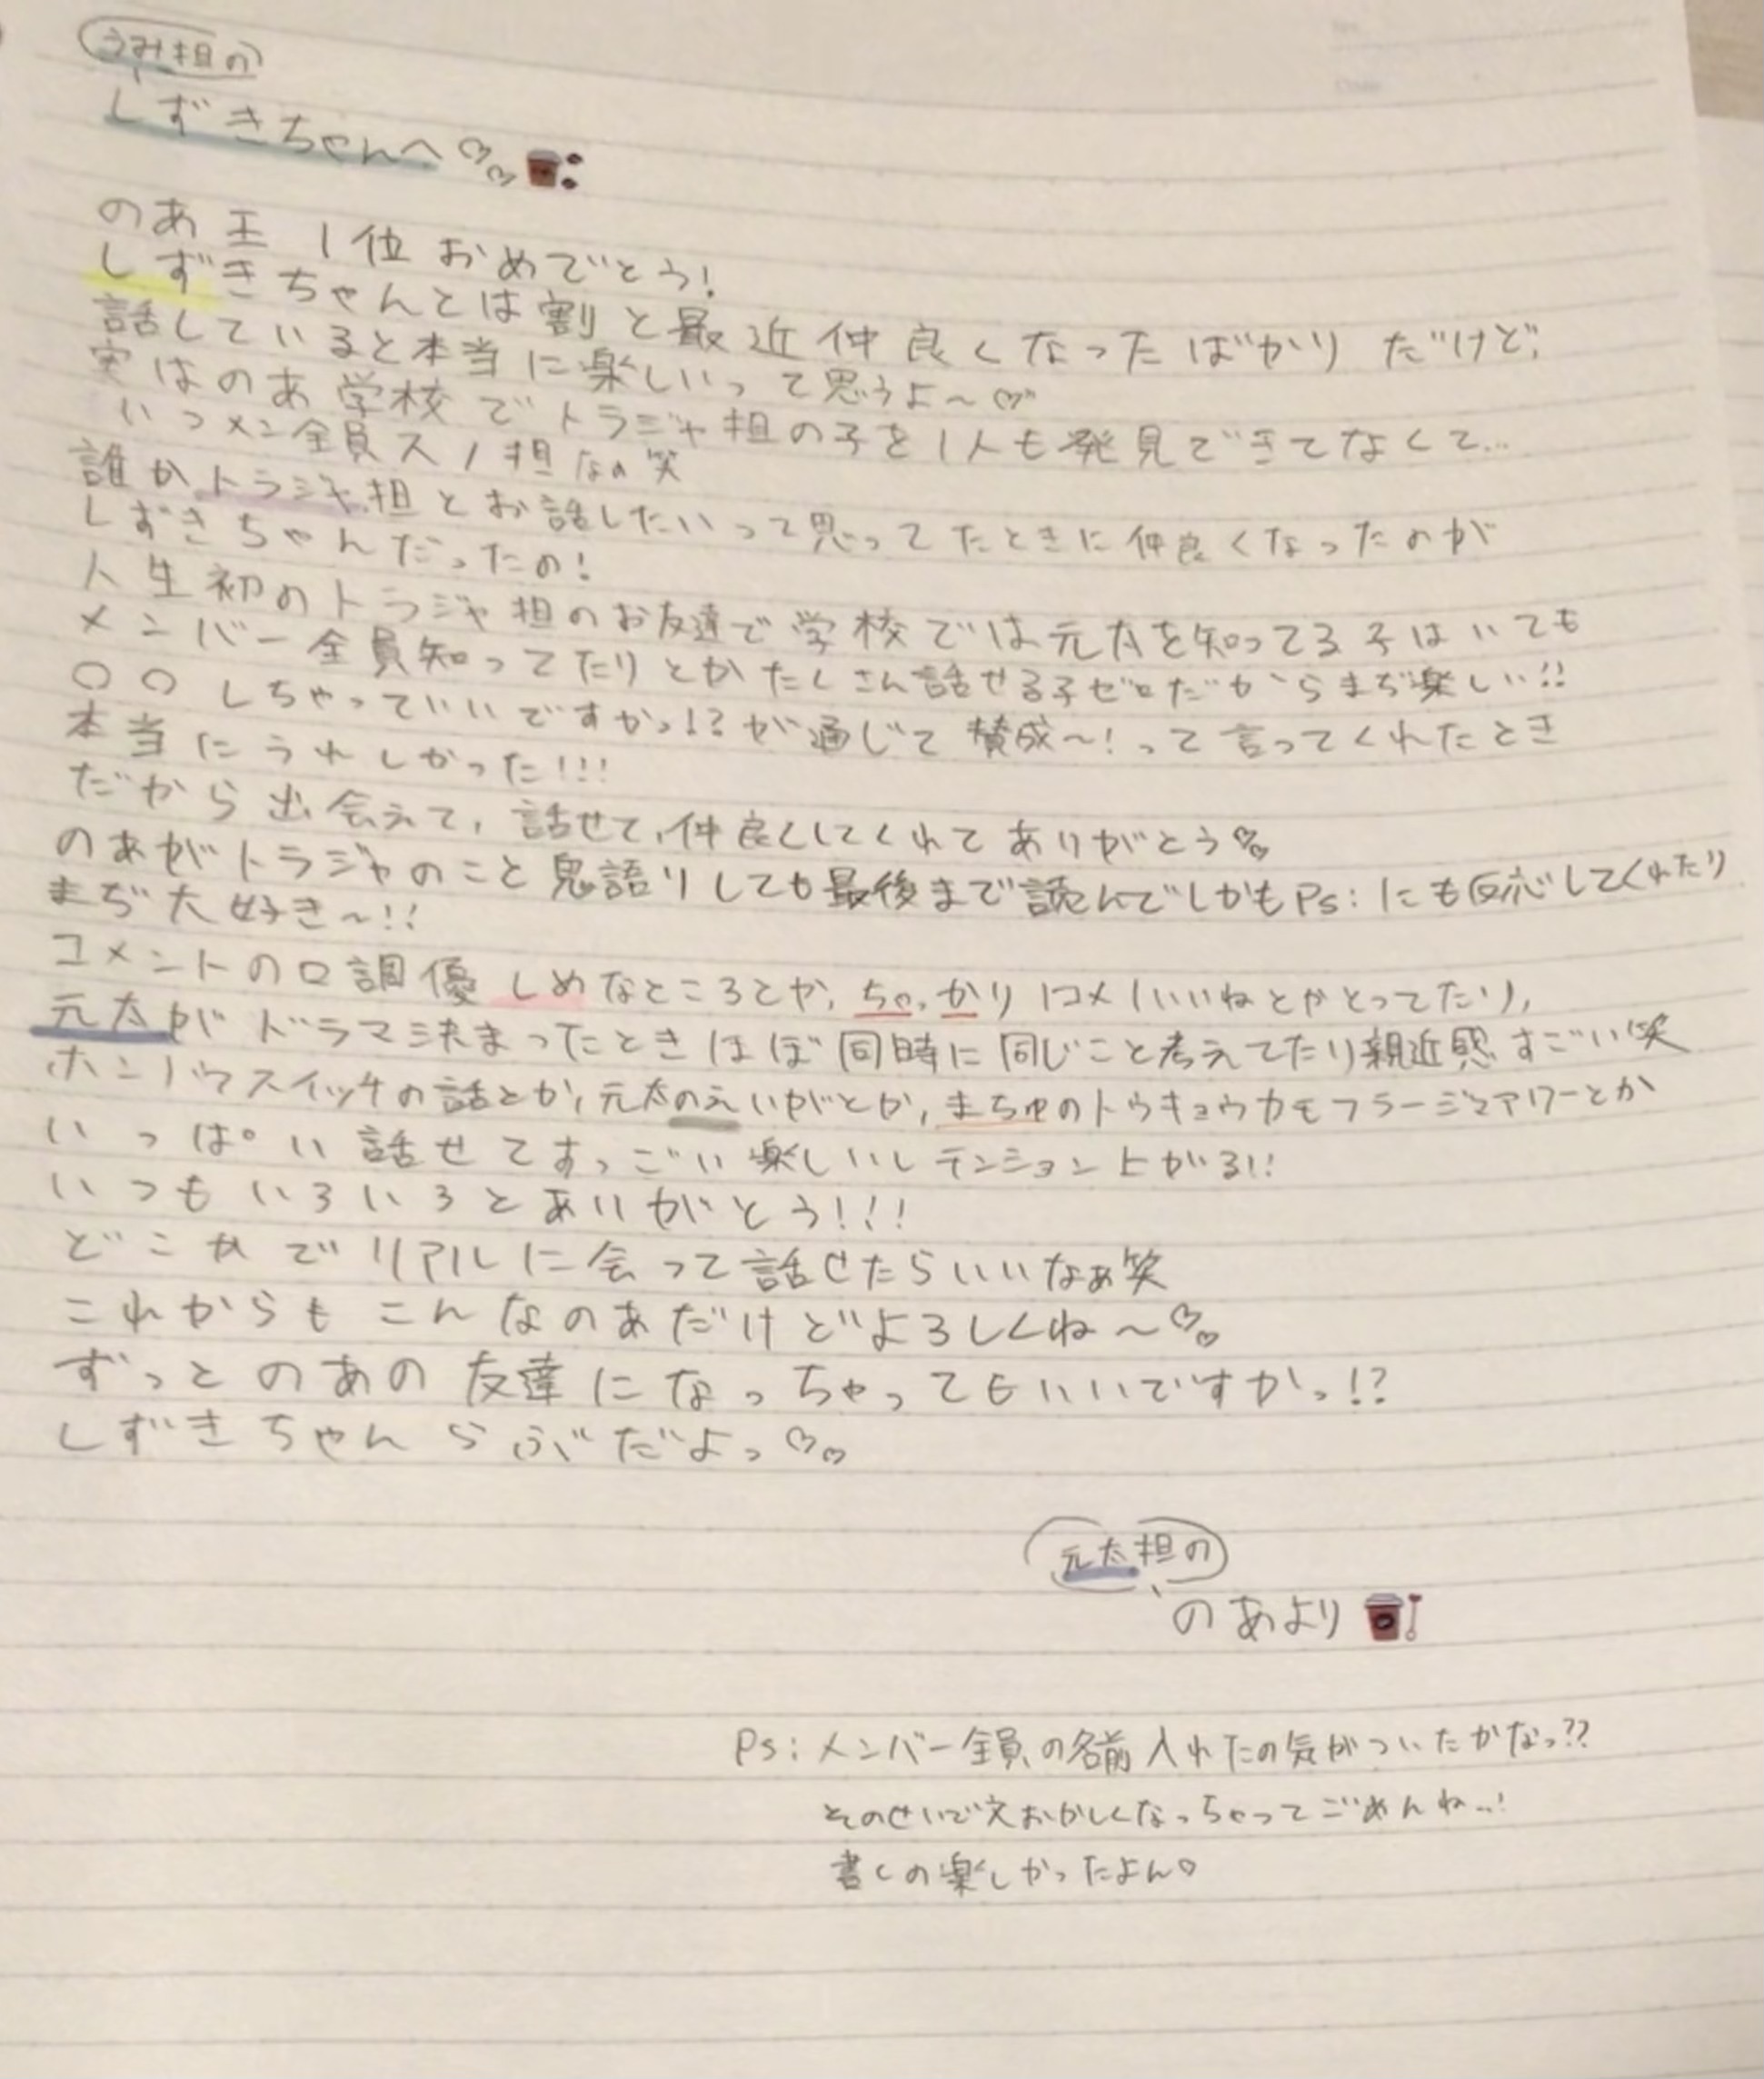 うみ担の
しずきちゃんへ♡♡
のあ王 1位 おめでとう!
しずきちゃんとは割と最近仲良くなったばかりだけど、
話していると本当に楽しいって思うよ~♡
実はのあ学校でトラジャ担の子を1人も発見できてなくて...
いつメン全員スノ担なの笑
誰かトラジャ担とお話したいって思ってたときに仲良くなったのが
しずきちゃんだったの!
人生初のトラジャ担のお友達で学校では元太を知ってる子はいても
メンバー全員知ってたりとかたくさん話せる子ゼロだからまぢ楽しい!!
〇〇しちゃっていいですかっ!?が通じて賛成~!って言ってくれたとき
本当にうれしかった!!!
だから出会えて、話せて、仲良くしてくれてありがとう♡♡
のあがトラジャのこと鬼語りしても最後まで読んでしかもPs:にも反応してくれたり
まぢ大好き~!!
コメントの口調優しめなところとか、ちゃっかり1コメ1いいねとかとってたり、
元太がドラマ決まったときほぼ同時に同じこと考えてたり親近感すごい笑
ホンノウスイッチの話とか、元太のえいがとか、まちゅのトウキョウカモフラージュアワーとか
いっぱい話せてすっごい楽しいしテンション上がる!!
いつもいろいろとありがとう!!!
どこかでリアルに会って話せたらいいなぁ笑
これからもこんなのあだけどよろしくね~♡♡
ずっとのあの友達になっちゃってもいいですかっ!?
しずきちゃんらぶだよっ♡♡
元太担の
のあより
Ps:メンバー全員の名前入れたの気がついたかなっ??
そのせいで文おかしくなっちゃってごめんね..!
書くの楽しかったよん♡